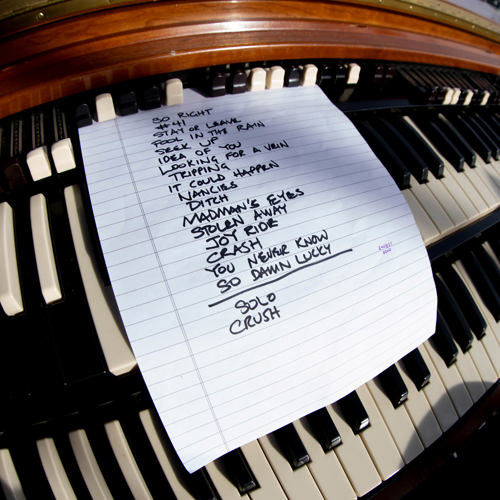 SO RIGHT
#41
STAY OR LEAVE
FOOL IN THE RAIN
SEEK UP
IDEA OF YOU
LOOKING FOR A VEIN
TRIPPING
IT COULD HAPPEN
NANCIES
DITCH
MADMAN'S EYES
STOLEN AWAY
JOY RIDE
CRASH
YOU NEVER KNOW
SO DAMN LUCKY
SOLO
CRUSH